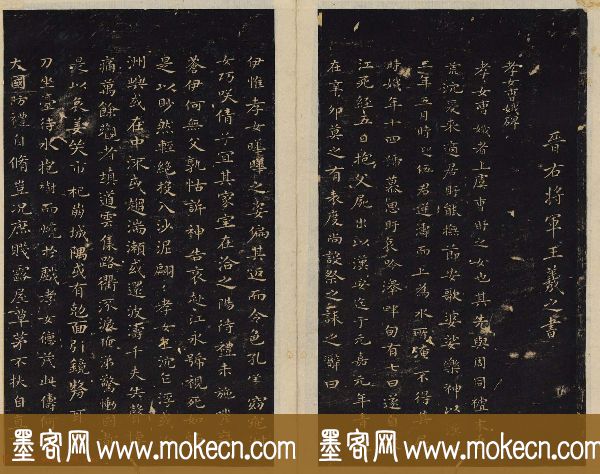 晋右將軍王羲之書
孝女曹娥碑
孝女曹娥者上虞曹盱之女也其先與周同祖末
荒沈爰来適居盱能撫節安歌婆娑樂神以
二年五月時迎伍君逆濤而上為水所淹不得其
時娥年十四號慕思盱哀吟澤畔旬有七日遂自
江死經五日抱父屍出以漢安迄于元嘉元年青
在辛卯莫之有表度尚設祭之誄之辭曰
伊惟孝女曄曄之姿偏其返而令色孔儀窈窕
女巧咲倩兮宜其家室在洽之陽待禮未施嗟
蒼伊何無父孰怙訴神告哀赴江永號視死如
是以眇然輕絶投入沙泥翩翩孝女乍沉乍浮或
洲嶼或在中流或趨湍瀨或還波濤千夫失聲悼
痛萬餘觀者填道雲集路衢泣淚掩涕驚慟國都
是以哀姜哭市杞崩城隅或有尅面引鏡剺耳
刀坐臺待水抱樹而燒於戲孝女德茂此儔何
大國防禮自脩豈況庶賤露屋草茅不扶自直
墨客网 www.mokecn.com
墨客网 www.mokecn.com